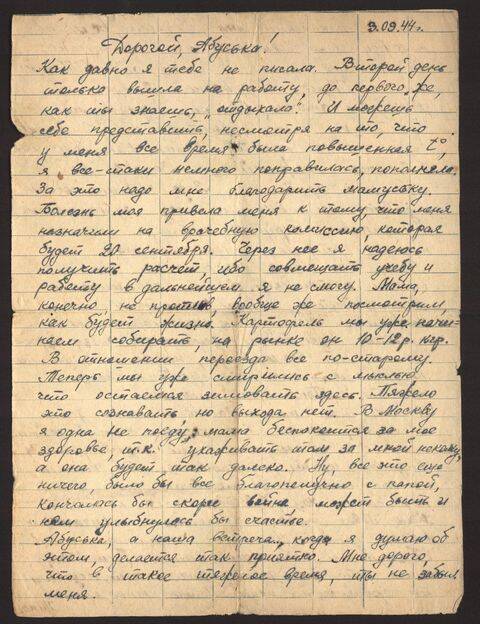 9.09.44г.
Дорогой, Абуська!
Как давно я тебе не писала. Второй день
только вышла на работу, до первого же,
как ты знаешь, „отдыхала". И можешь
себе представить, несмотря на то, что
у меня все время была повышенная t°,
я все-таки немного поправилась, пополнела.
За это надо мне благодарить мамуську.
Болезнь моя привела меня к тому, что меня
назначили на врачебную комиссию, которая
будет 20 сентября. Через нее я надеюсь
получить расчет, ибо совмещать учебу и
работу в дальнейшем я не смогу. Мама,
конечно, не против, вообще же посмотрим,
как будет жизнь. Картофель мы уже начи-
наем собирать, на рынке он 10-12р. кгр.
В отношении переезда все по-старому.
Теперь мы уже смирились с мыслью,
что остаемся зимовать здесь. Тяжело
это сознавать но выхода нет. В Москву
я одна не поеду, мама беспокоится за мое
здоровье, т.к. ухаживать там за мной некому,
а она будет так далеко. Ну, все это еще
ничего, было бы все благополучно с папой,
кончалась бы скорей война, может быть и
нам улыбнулось бы счастье.
Абуська, а наша встреча, когда я думаю об
этом, делается так приятно. Мне дорого,
что в такое тяжелое время, ты не забыл
меня.